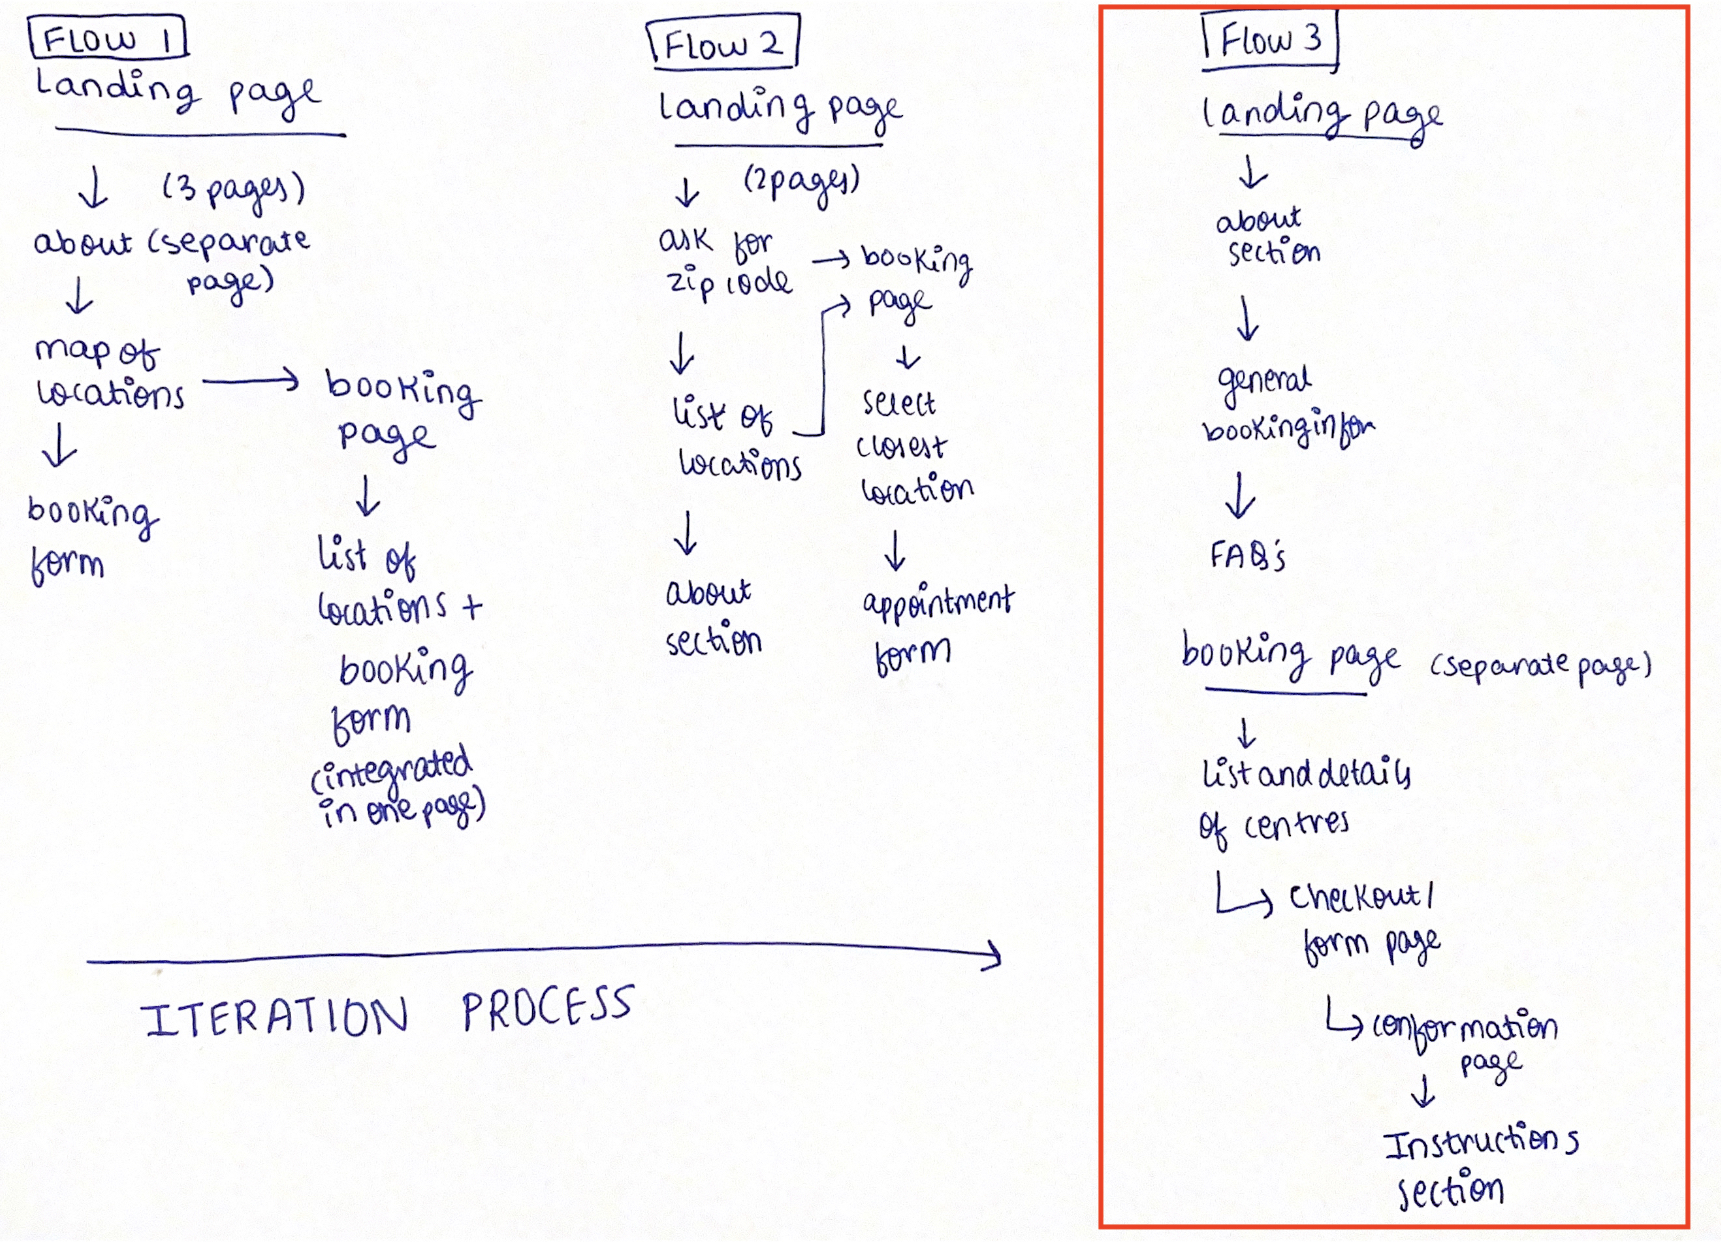 FLOW 1
Landing page
(3 pages)
about (separate
page)
map of
locations
booking
form
booking
page
list of
locations +
booking
form
(integrated
in one page)
FLOW 2
landing page
(2pages)
ask for
zip code
list of
locations
about
section
booking
page
select
closest
location
appointment
form
Flow 3
landing page
about
section
general
booking infor
FAQ's
booking page (separate page)
list and details
of centres
checkout/
form page
conformation
page
Instructions
section
ITERATION PROCESS